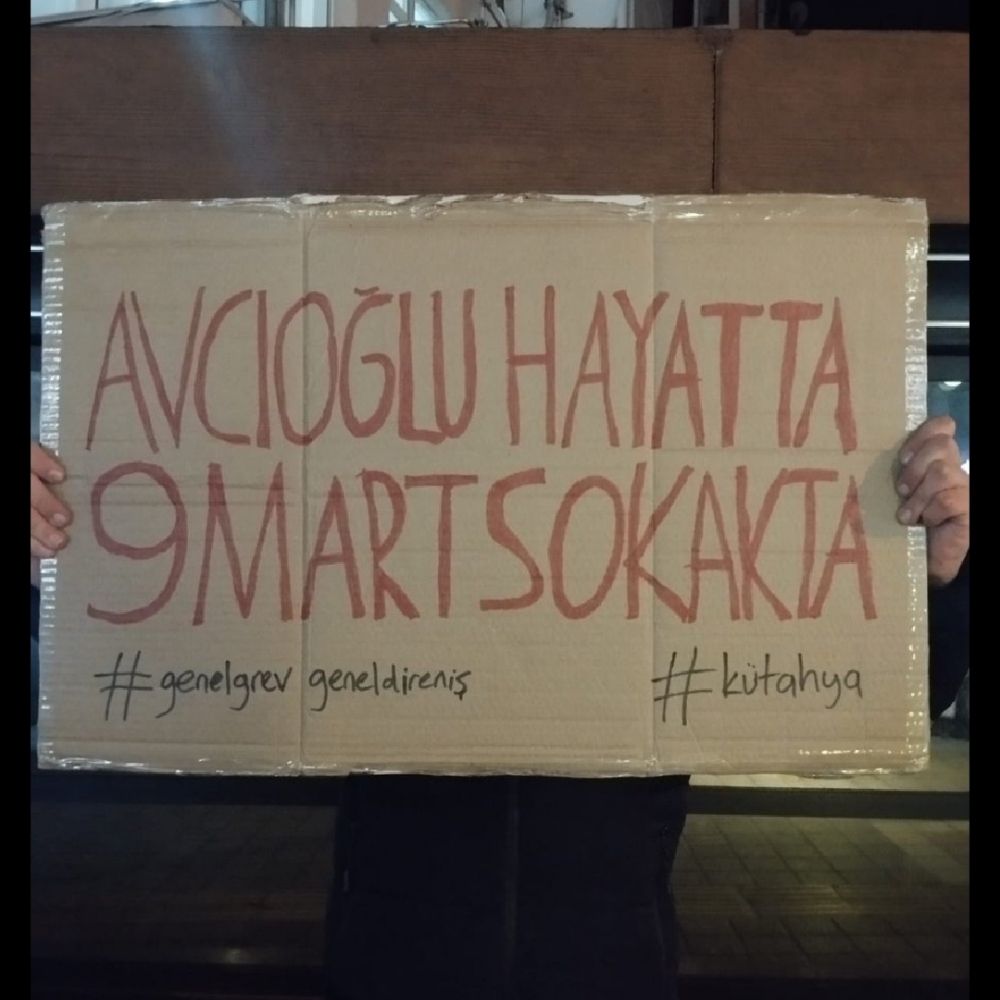 AVCIOĞLU HAYATTA
9 MART SOKAKTA
#genelgrev geneldireniş #kütahya